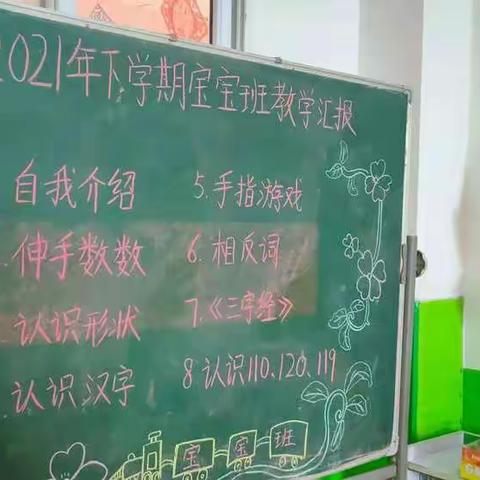 2021年下学期宝宝班教学汇报
自我介绍
伸手数数
认识形状
认识汉字
5.手指游戏
6.相反词
7.《三字经》
8认识110、120、119
宝宝班